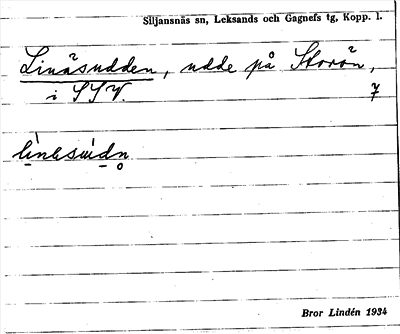 Siljansnäs sn, Leksands och Gagnefs tg, Kopp. l.
Linäsudden, udde på Storön,
i SSV. 7
Bror Lindén 1934